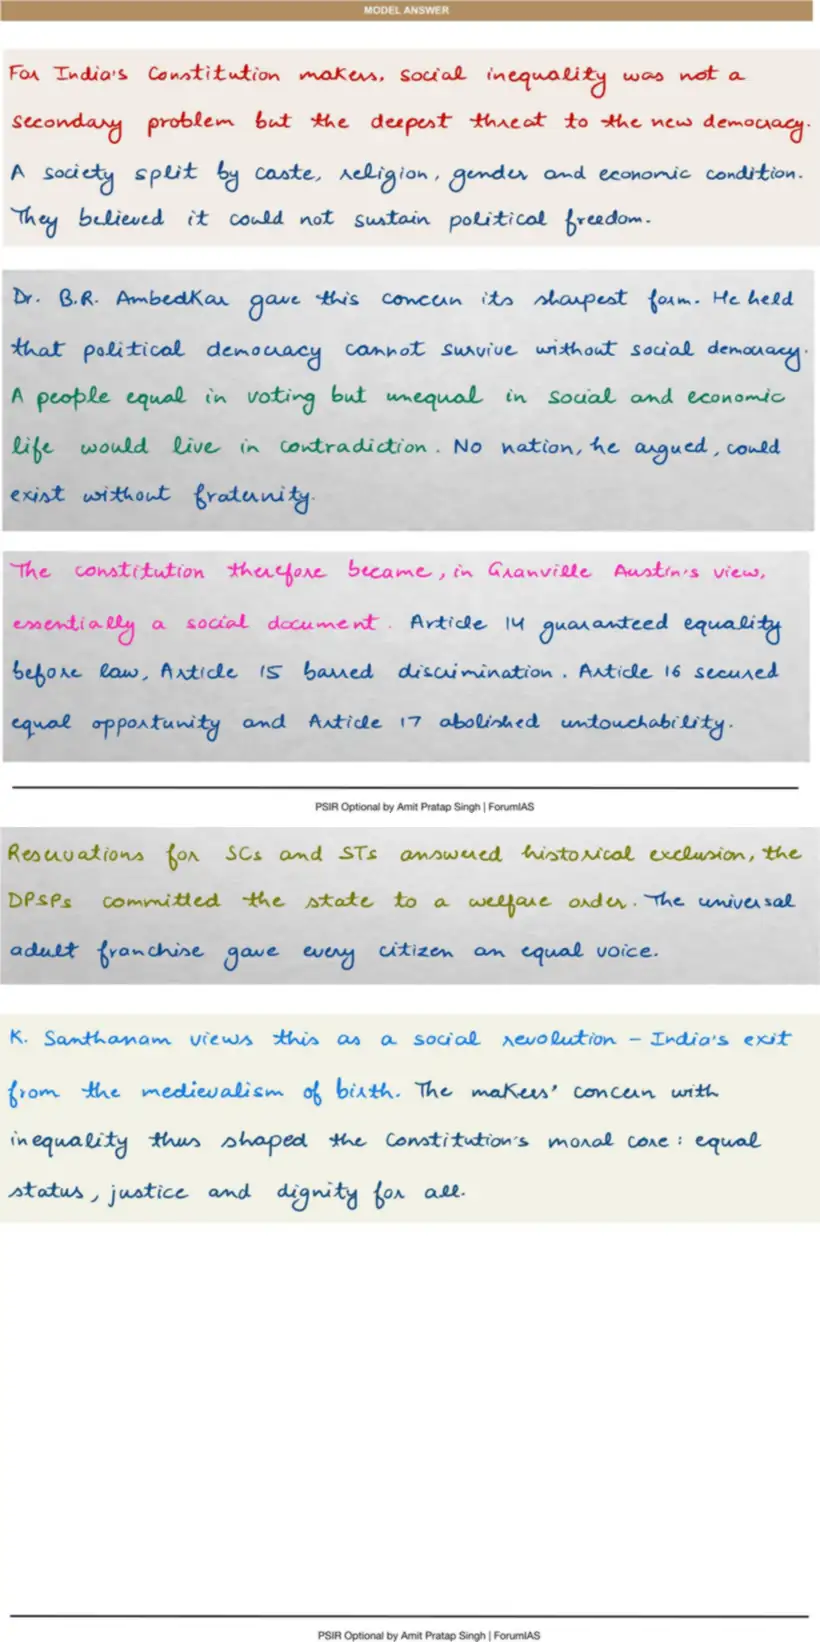 MODEL ANSWER
For India's Constitution makers, social inequality was not a
secondary problem but the deepest threat to the new democracy.
A society split by caste, religion, gender and economic condition.
They believed it could not sustain political freedom.
Dr. B.R. Ambedkar gave this concern its sharpest form. He held
that political democracy cannot survive without social democracy.
A people equal in voting but unequal in social and economic
life would live in contradiction. No nation, he argued, could
exist without fraternity.
The constitution therefore became, in Granville Austin's view,
essentially a social document. Article 14 guaranteed equality
before law, Article 15 barred discrimination. Article 16 secured
equal opportunity and Article 17 abolished untouchability.
PSIR Optional by Amit Pratap Singh | ForumIAS
Reservations for SCs and STs answered historical exclusion, the
DPSPs committed the state to a welfare order. The universal
adult franchise gave every citizen an equal voice.
K. Santhanam views this as a social revolution – India's exit
from the medievalism of birth. The makers' concern with
inequality thus shaped the Constitution's moral core: equal
status, justice and dignity for all.
PSIR Optional by Amit Pratap Singh | ForumIAS